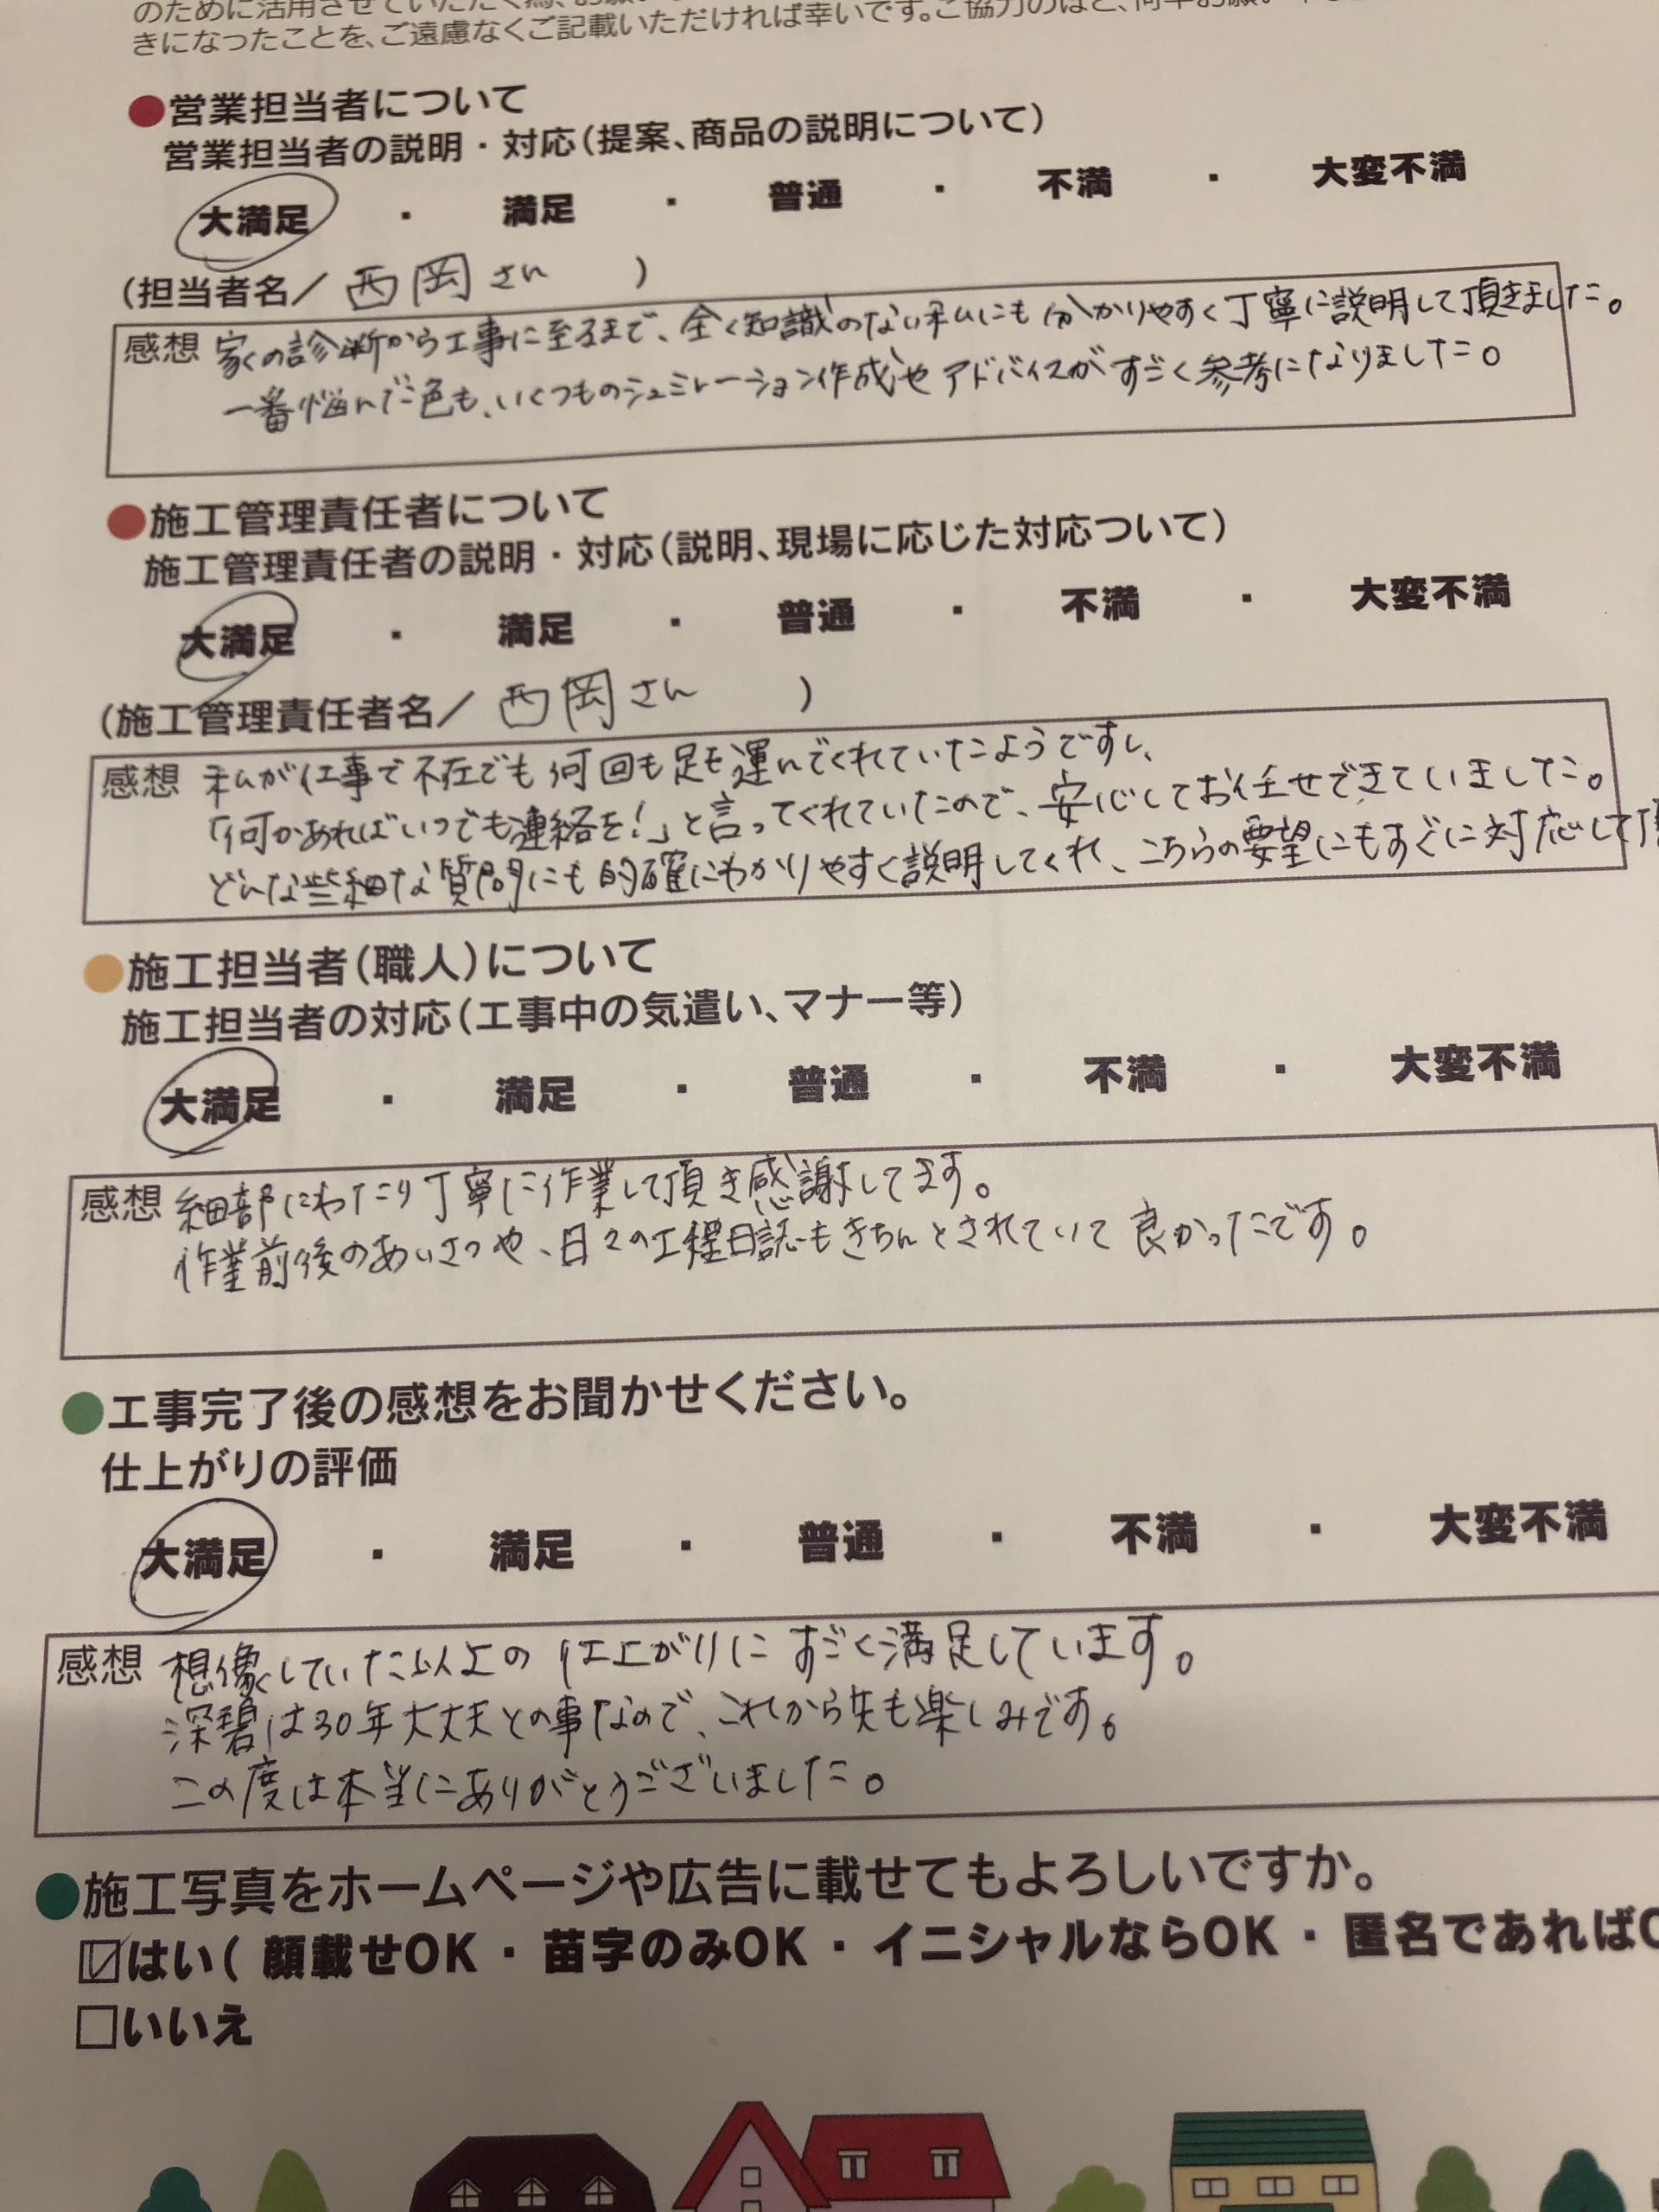 きになったことを、ご遠慮なくご記載いただければ幸いです。ご協力のほど、何卒お願い
●営業担当者について
営業担当者の説明・対応(提案、商品の説明について)
大満足 ・ 満足 ・ 普通 ・ 不満 ・ 大変不満
(担当者名/ 西岡さん )
感想 家の診断から工事に至るまで、全く知識のない私にも分かりやすく丁寧に説明して頂きました。
一番悩んだ色も、いくつものシュミレーション作成やアドバイスがすごく参考になりました。
●施工管理責任者について
施工管理責任者の説明・対応(説明、現場に応じた対応ついて)
大満足 ・ 満足 ・ 普通 ・ 不満 ・ 大変不満
(施工管理責任者名/ 西岡さん )
感想 私が仕事で不在でも何回も足を運んでくれていたようですし、
「何かあればいつでも連絡を!」と言ってくれていたので、安心してお任せできていました。
どんな些細な質問にも的確にわかりやすく説明してくれ、こちらの要望にもすぐに対応して
●施工担当者(職人)について
施工担当者の対応(工事中の気遣い、マナー等)
大満足 ・ 満足 ・ 普通 ・ 不満 ・ 大変不満
感想 細部にわたり丁寧に作業して頂き感謝してます。
作業前後のあいさつや、日々の工程日誌もきちんとされていて良かったです。
●工事完了後の感想をお聞かせください。
仕上がりの評価
大満足 ・ 満足 ・ 普通 ・ 不満 ・ 大変不満
感想 想像していた以上の仕上がりにすごく満足しています。
深碧は30年大丈夫との事なので、これから先も楽しみです。
この度は本当にありがとうございました。
●施工写真をホームページや広告に載せてもよろしいですか。
☑はい( 顔載せOK ・ 苗字のみOK ・ イニシャルならOK ・ 匿名であれば
□いいえ